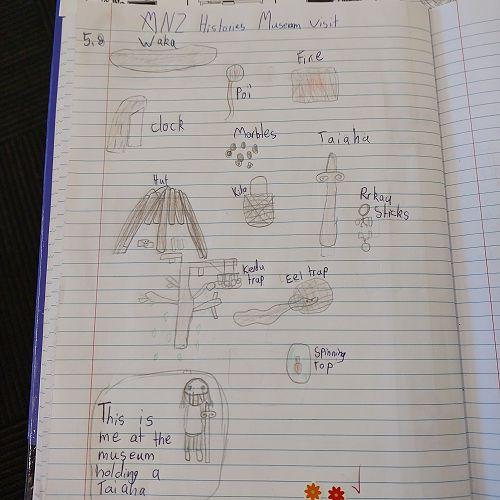 NZ Histories Museum Visit
5.8
Waka
Fire
Poi
clock
Marbles
Taiaha
Hut
Sticks
trap
Eel trap
Spinning
Top
This is
me at the
museum
holding a
Taiaha